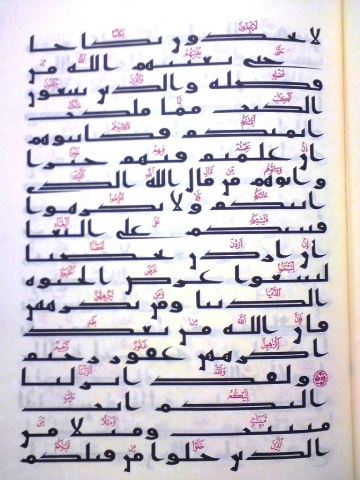 لا يجدون نكاحا
حتى يغنيهم الله من
فضله والذين يبتغون
الكتب مما ملكت
ايمنكم فكاتبوهم
ان علمتم فيهم خيرا
واتوهم من مال الله الذي
اتيكم ولا تكرهوا
فتيتكم على البغا
ان اردن تحصنا
لتبتغوا عرض الحيوه
الدنيا ومن يكرههن
فان الله من بعد
اكرههن غفور رحيم
ولقد انزلنا
اليكم ايت
مبينت ومثلا من
الذين خلوا من قبلكم